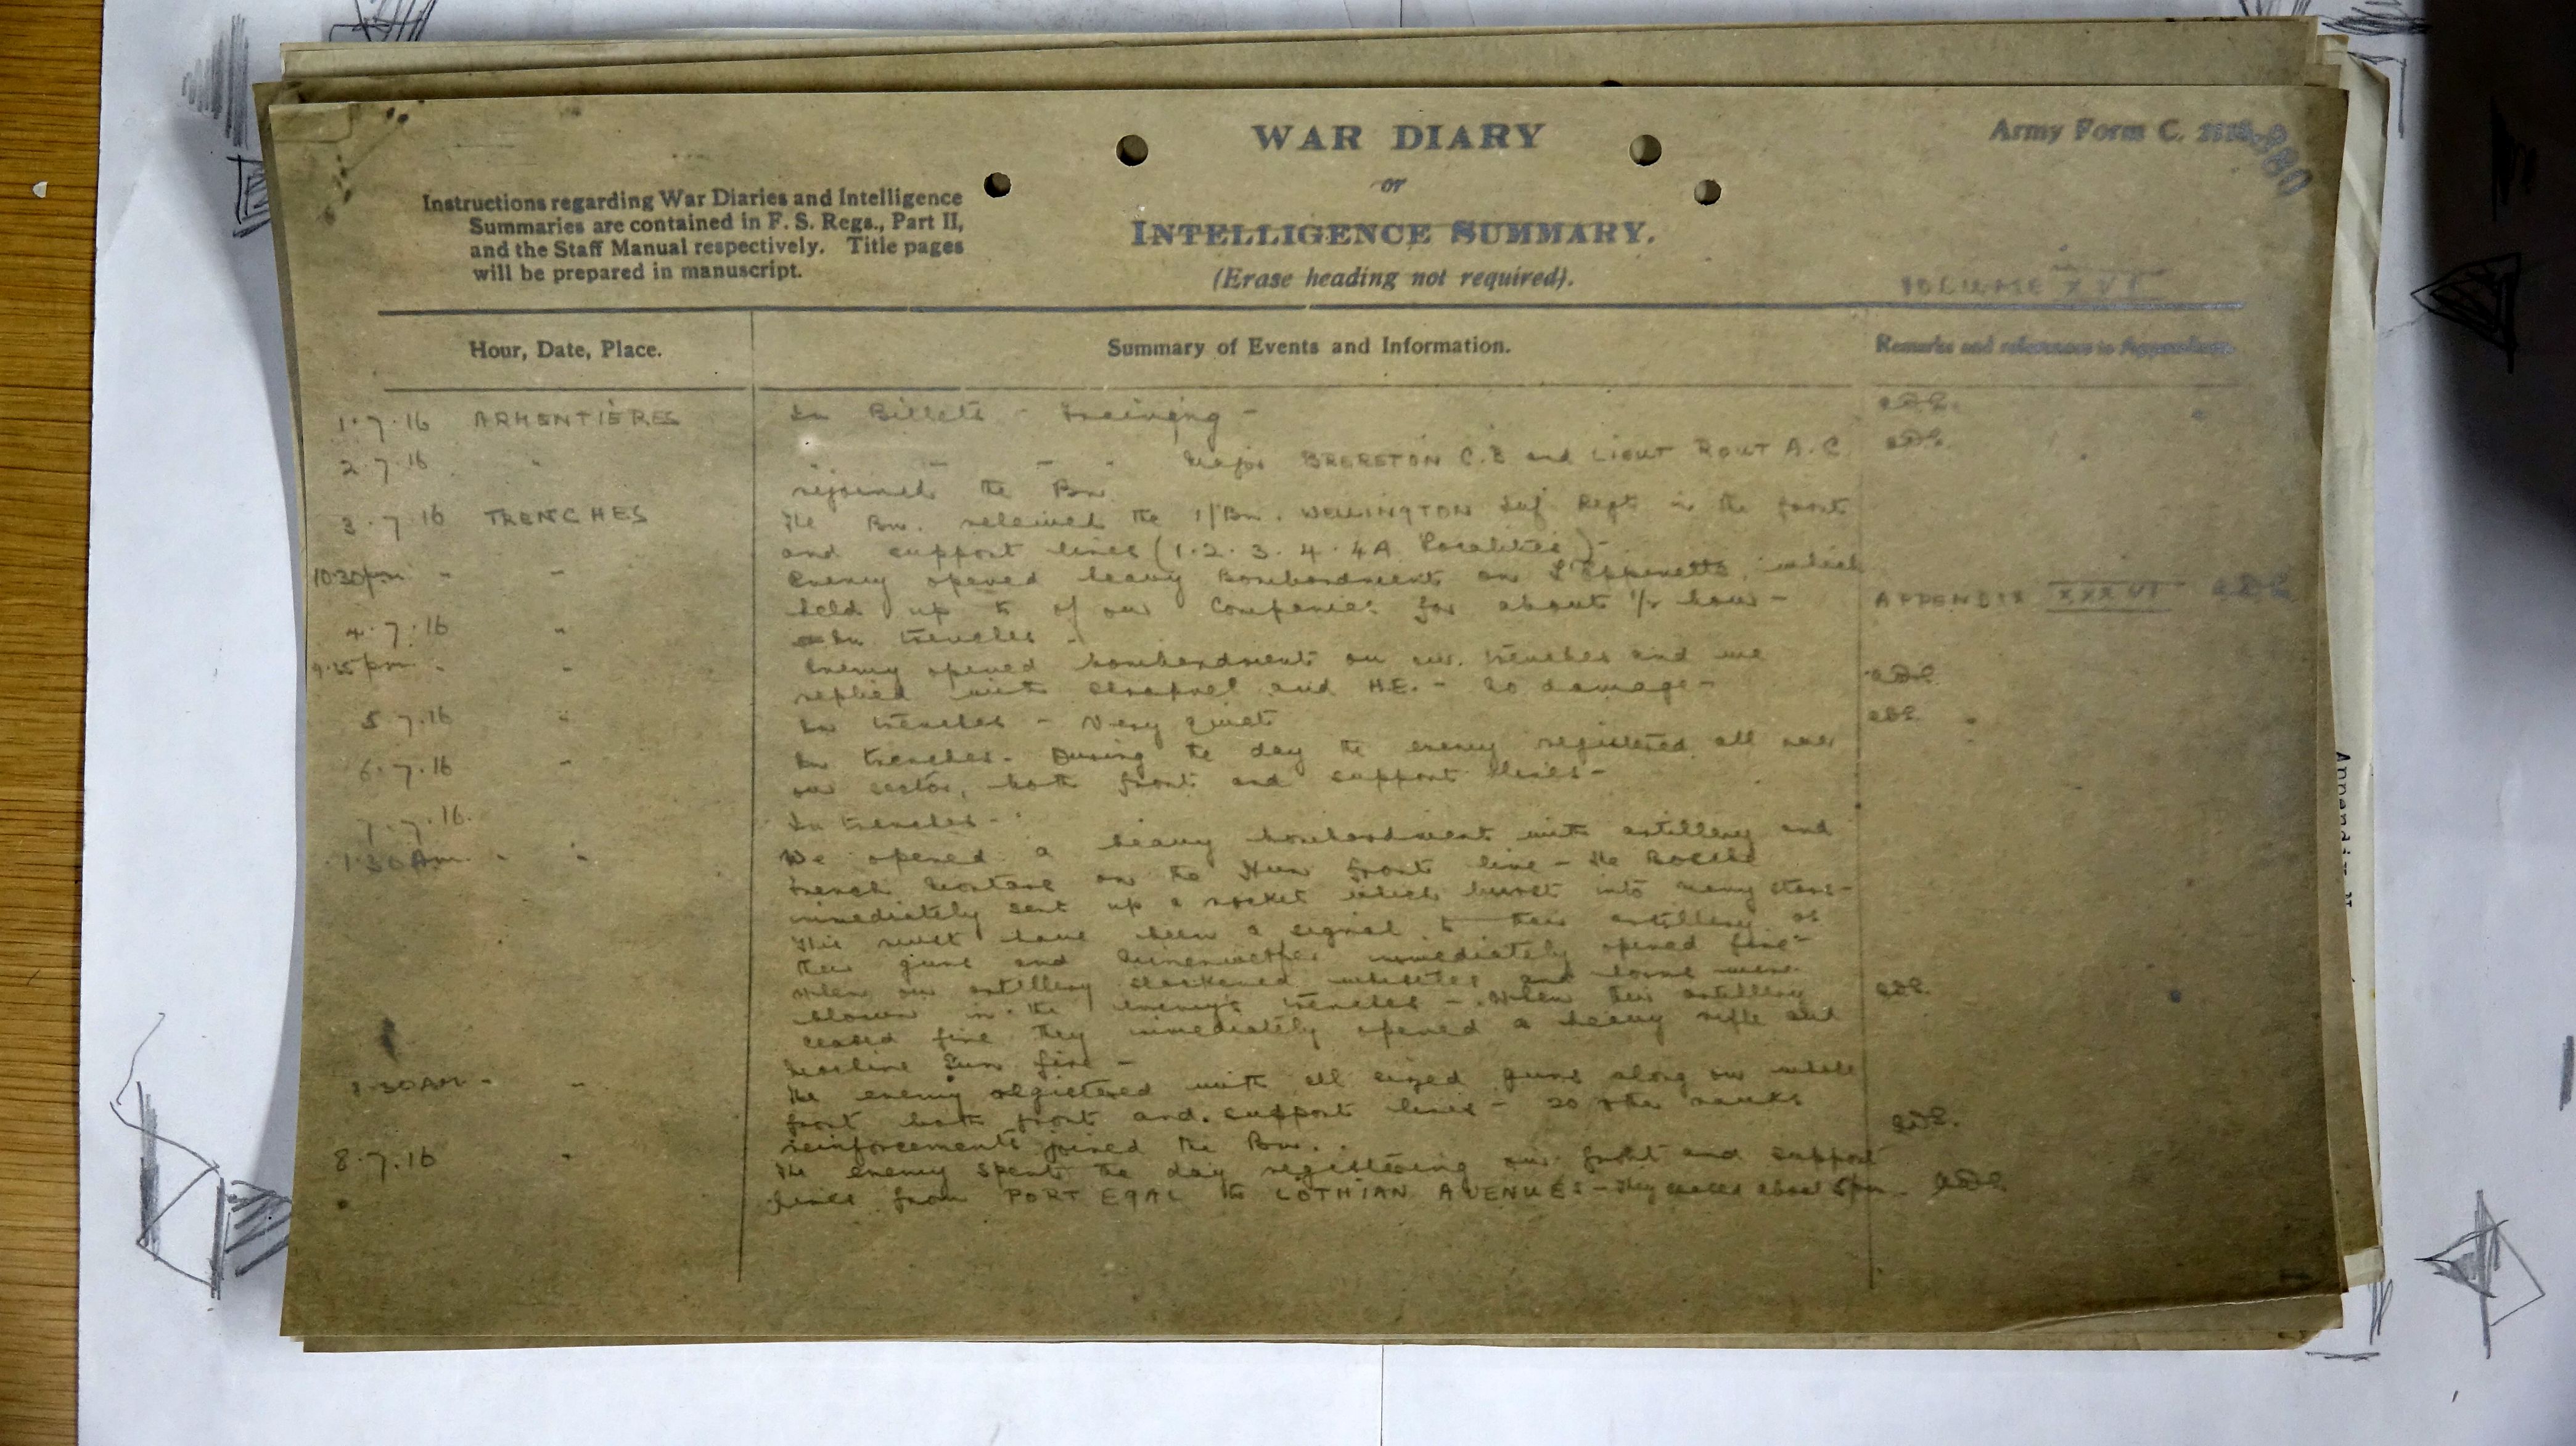 WAR DIARY
or
INTELLIGENCE SUMMARY.
(Erase heading not required).
Army Form C. 2118.
380
Instructions regarding War Diaries and Intelligence
Summaries are contained in F. S. Regs., Part II,
and the Staff Manual respectively. Title pages
will be prepared in manuscript.
VOLUME XVI
Hour, Date, Place.
Summary of Events and Information.
Remarks and references to Appendices.
1.7.16 ARMENTIÈRES In Billets - Training -
2.7.16 " " - - " Major BRERETON C.B and LIEUT ROUT A.C
rejoined the Bn.
3.7.16 TRENCHES The Bn. relieved the 1/Bn. WELLINGTON Inf Regt in the front
and support lines (1.2.3.4.4A Localities) -
10.30pm " " Enemy opened heavy Bombardment on L'Eppinette, which
held up to of our Companies for about 1/2 hour - APPENDIX XXXVI
4.7.16 " In trenches -
9.15pm " " Enemy opened bombardment on our trenches and we
replied with shrapnel and H.E. - No damage -
5.7.16 " In trenches - Very quiet
6.7.16 " In trenches - During the day the enemy registered all over
our sector, both front and support lines -
7.7.16. In trenches -
1.30Am. " " We opened a heavy bombardment with artillery and
trench mortars on the Hun front line - The Boche
immediately sent up a rocket which burst into many stars -
This must have been a signal to their artillery as
their guns and minenwerfer immediately opened fire -
When our artillery slackened whistles and horns were
blown in the enemy's trenches - When their artillery
ceased fire they immediately opened a heavy rifle and
Machine Gun fire -
30AM " " The enemy registered with all sized guns along our whole
front both front and support lines - 20 other ranks
reinforcements joined the Bn.
8.7.16 " The enemy spent the day registering our front and support
lines from PORT EGAL to LOTHIAN AVENUE - They ceased about 5pm.
Appendix